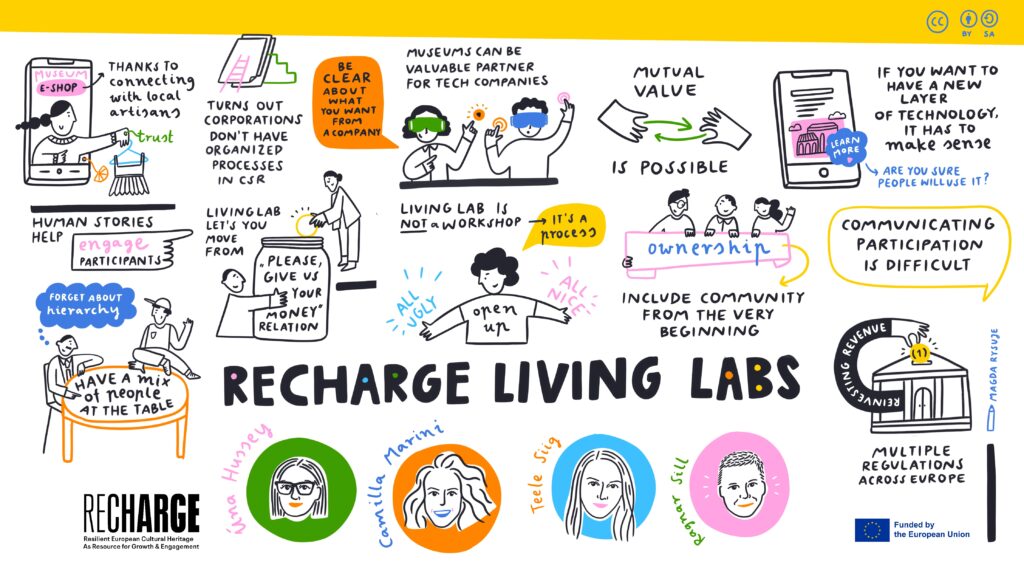 CC
BY SA
MUSEUM
E-SHOP
THANKS TO
connecting
with local
artisans
trust
TURNS OUT
CORPORATIONS
DON'T HAVE
ORGANIZED
PROCESSES
IN CSR
BE
CLEAR
ABOUT
WHAT
YOU WANT
FROM
A COMPANY
MUSEUMS CAN BE
VALUABLE PARTNER
FOR TECH COMPANIES
MUTUAL
VALUE
IS POSSIBLE
LEARN
MORE
IF YOU WANT TO
HAVE A NEW
LAYER
OF TECHNOLOGY,
IT HAS TO
make sense
ARE YOU SURE
PEOPLE WILL USE IT?
HUMAN STORIES
HELP
engage
PARTICIPANTS
LIVING LAB
LET'S YOU
MOVE
FROM
"PLEASE,
GIVE US
YOUR
MONEY"
RELATION
LIVING LAB IS
NOT a WORKSHOP
IT'S A
process
ALL
UGLY
open
up
ALL
NICE
ownership
INCLUDE COMMUNITY
FROM THE VERY
BEGINNING
COMMUNICATING
PARTICIPATION
IS DIFFICULT
FORGET ABOUT
hierarchy
HAVE A MIX
of people
AT THE TABLE
RECHARGE LIVING LABS
REINVESTING REVENUE
(1)
MULTIPLE
REGULATIONS
ACROSS EUROPE
MAGDA RYSUJE
Una Hussey
Camilla Marini
Teele Siig
Ragnar Siil
RECHARGE
Resilient European Cultural Heritage
As Resource for Growth & Engagement
Funded by
the European Union